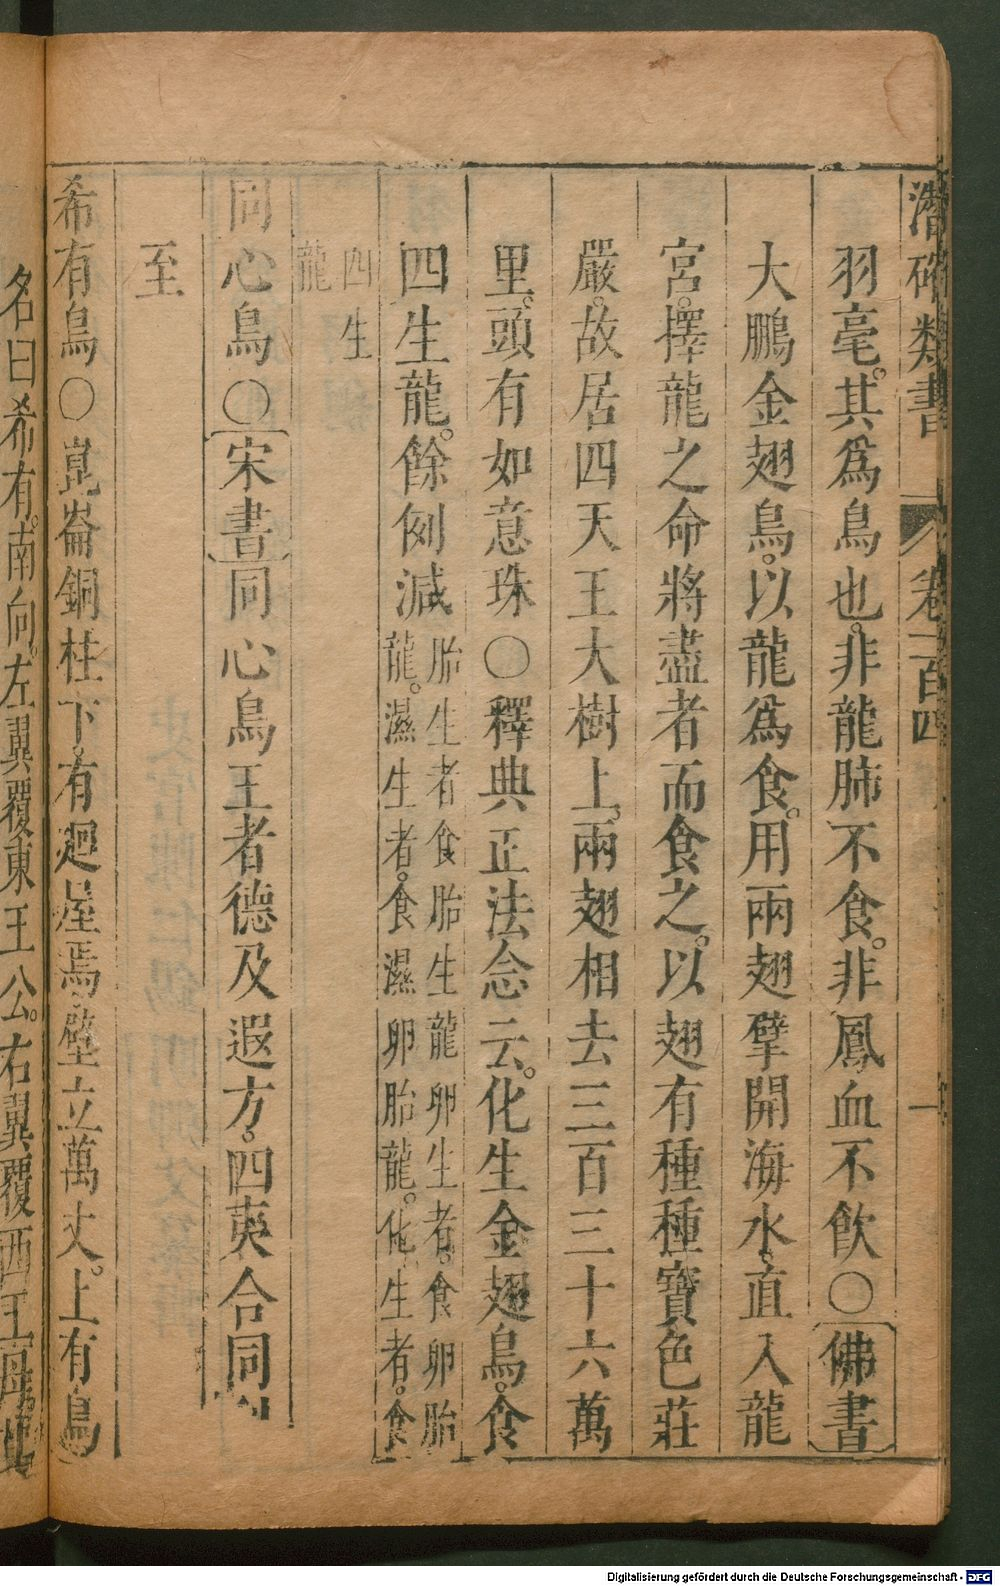 潛確類書 卷一百四 一
羽毫。其爲鳥也。非龍肺不食。非鳳血不飲〇佛書
大鵬金翅鳥。以龍爲食。用兩翅擘開海水。直入龍
宮。擇龍之命將盡者而食之。以翅有種種寶色莊
嚴。故居四天王大樹上。兩翅相去三百三十六萬
里。頭有如意珠〇釋典正法念云。化生金翅鳥。食
四生龍。餘例減胎生者食胎生龍卵生者。食卵胎龍。濕生者。食濕卵胎龍。化生者。食四生龍
同心鳥〇宋書同心鳥王者德及遐方。四夷合同則
至
希有鳥〇崑崙銅柱下。有廻屋焉。壁立萬丈。上有鳥
名曰希有。南向。左翼覆東王公。右翼覆西王母
Digitalisierung gefördert durch die Deutsche Forschungsgemeinschaft - DFG